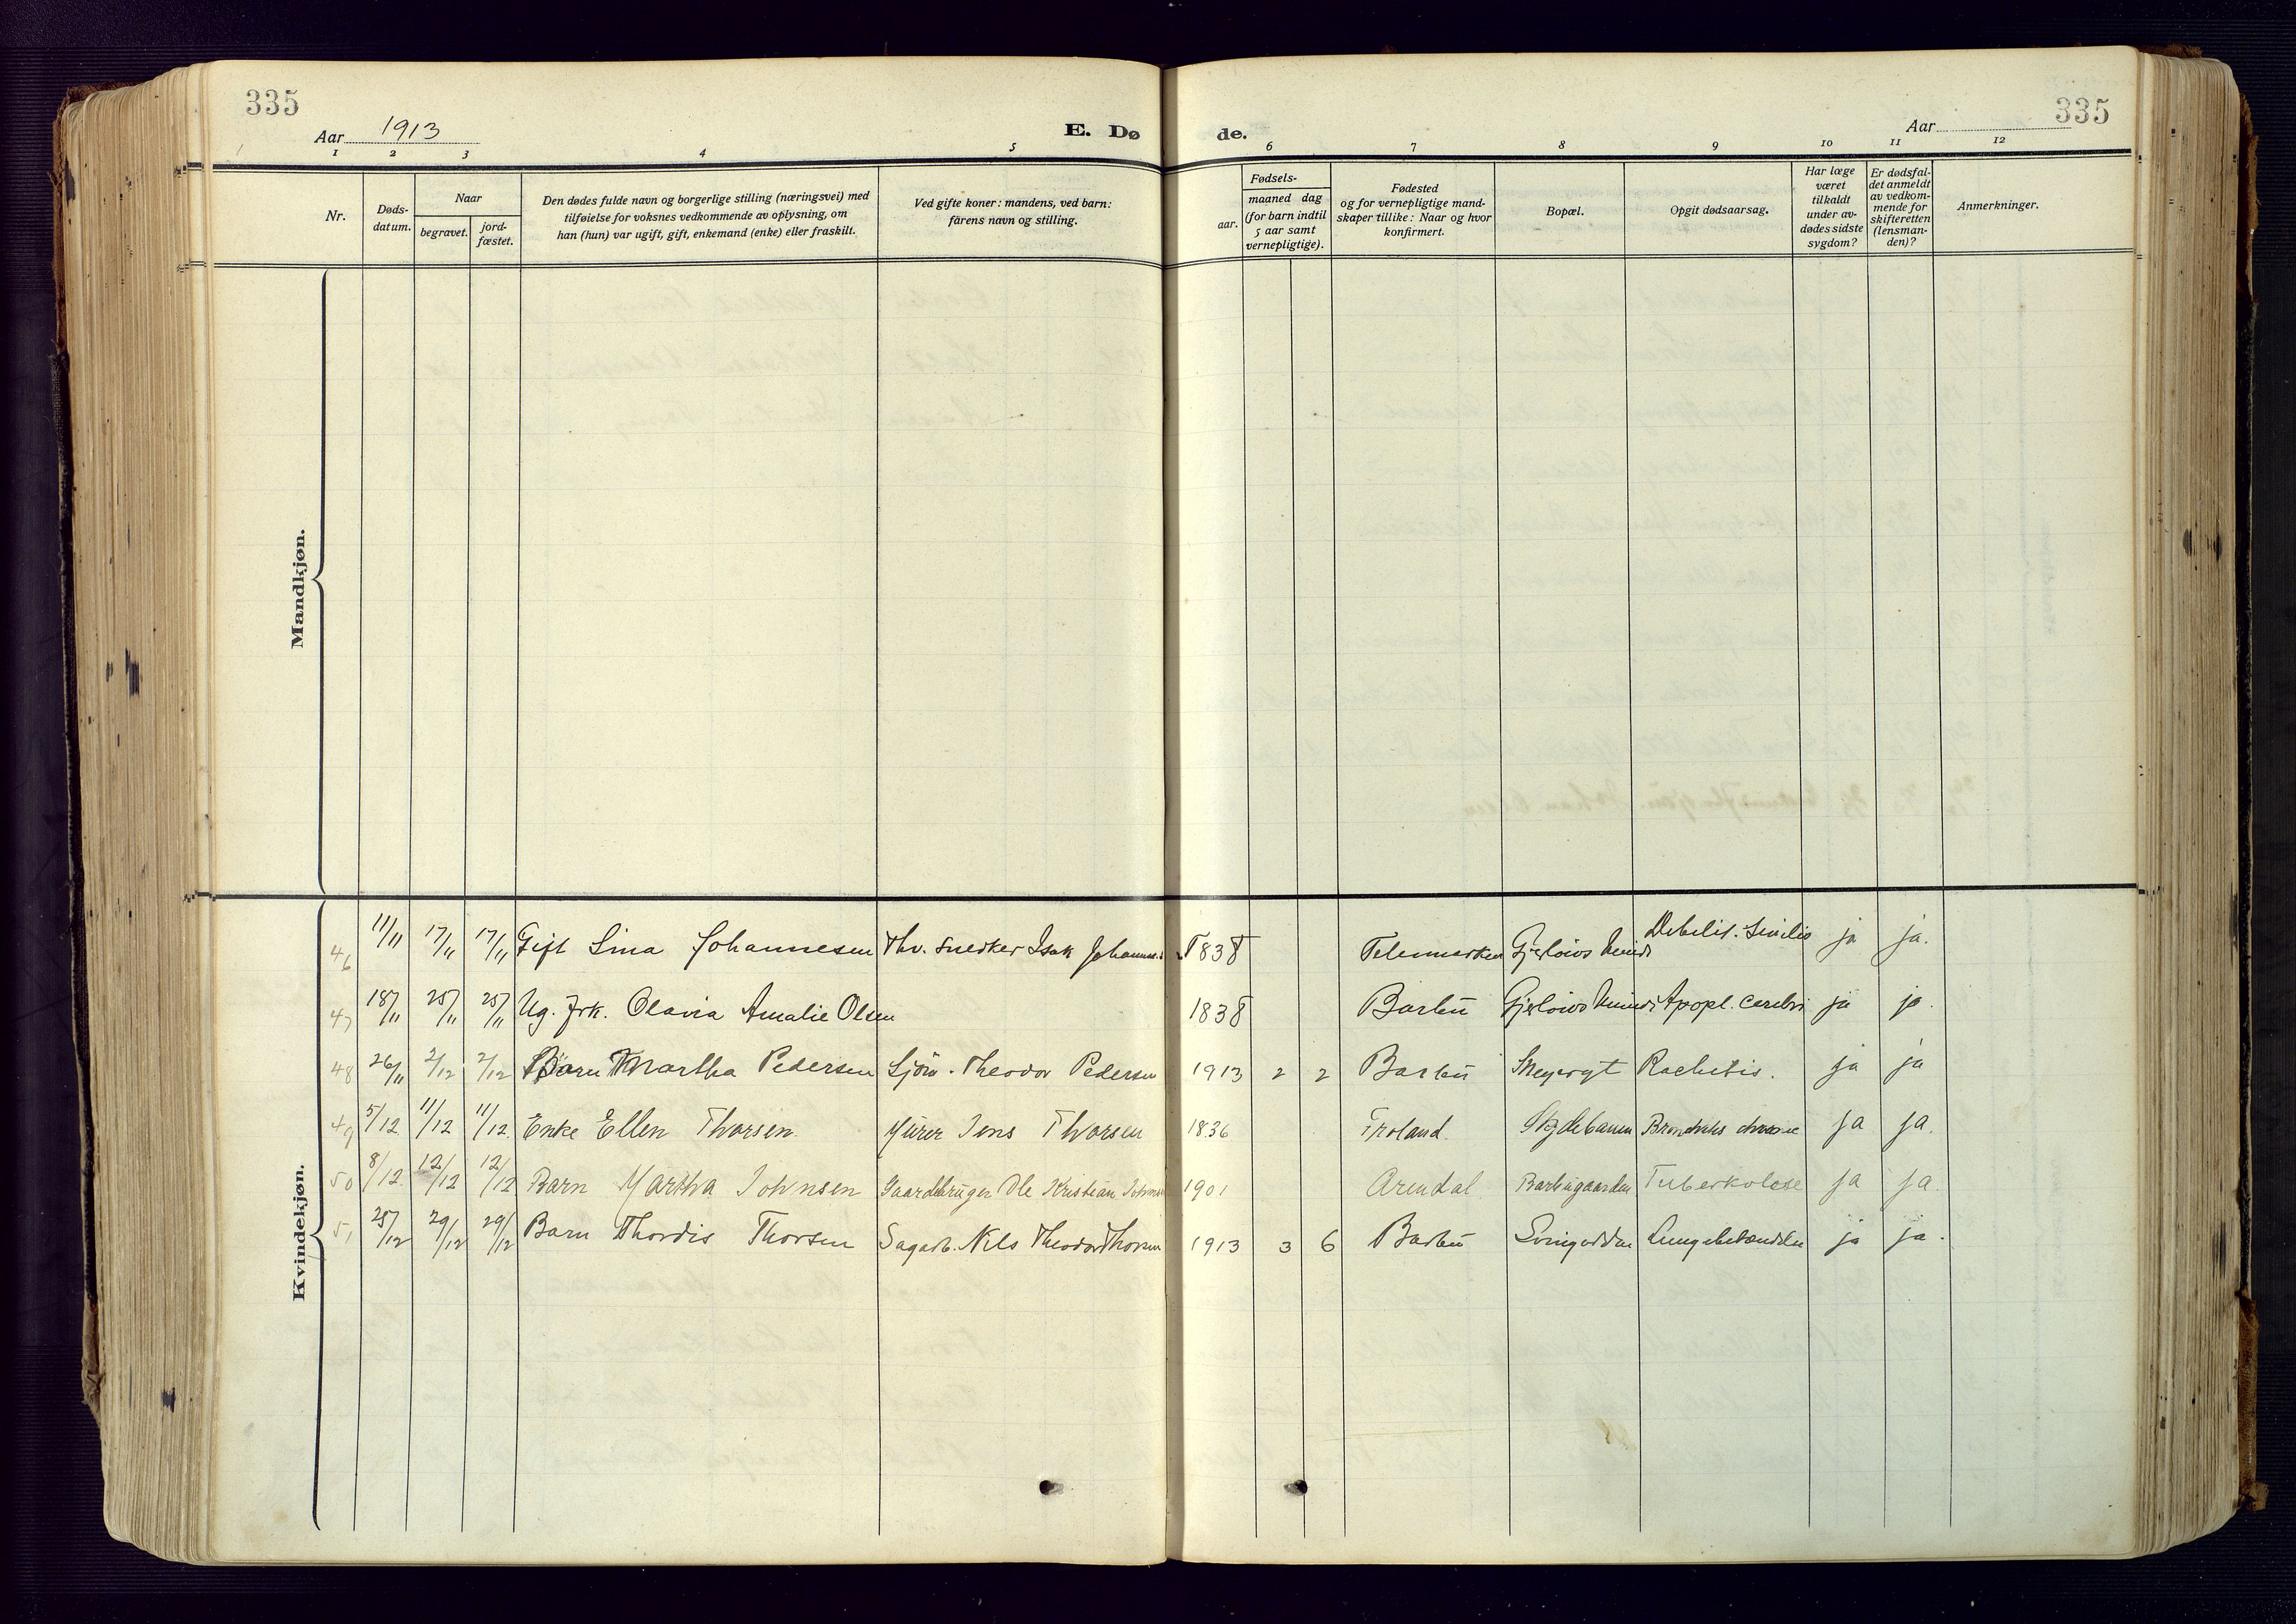 335
335
Aar 1913
E. Dø
de.
Aar
1 2 3 4 5 6 7 8 9 10 11 12
Nr.
Døds-
datum.
Naar
begravet.
jord-
fæstet.
Den dødes fulde navn og borgerlige stilling (næringsvei) med
tilføielse for voksnes vedkommende av oplysning, om
han (hun) var ugift, gift, enkemand (enke) eller fraskilt.
Ved gifte koner: mandens, ved barn:
farens navn og stilling.
Fødsels-
aar.
maaned dag
(for barn indtil
5 aar samt
vernepligtige).
Fødested
og for vernepligtige mand-
skaper tillike: Naar og hvor
konfirmert.
Bopæl.
Opgit dødsaarsag.
Har læge
været
tilkaldt
under av-
dødes sidste
sygdom?
Er dødsfal-
det anmeldt
av vedkom-
mende for
skifteretten
(lensman-
den)?
Anmerkninger.
Mandkjøn.
Kvindekjøn.
46 11/11 17/11 17/11 Gift Lina Johannesen Thv. Snedker Isak 1838 Telemarken Debilit. Senilis ja ja.
47 18/11 25/11 25/11 Ug. frk. Olavia Amalie Olsen 1838 Barbu Apopl. cerebri ja ja.
48 26/11 2/12 2/12 Barn Martha Pedersen Sjöm. Theodor Pedersen 1913 2 2 Barbu Rachitis. ja ja
49 5/12 11/12 11/12 Enke Ellen Thorsen Jens Thorsen 1836 Froland ja ja.
50 8/12 12/12 12/12 Barn Martha Johnsen Gaardbruger Ole Kristian Johnsen 1901 Arendal Barbugaarden Tuberkolose ja ja.
51 25/12 29/12 29/12 Barn Thordis Thorsen Sagarb. Nils Theodor Thorsen 1913 3 6 Barbu Lungebetændelse ja ja.